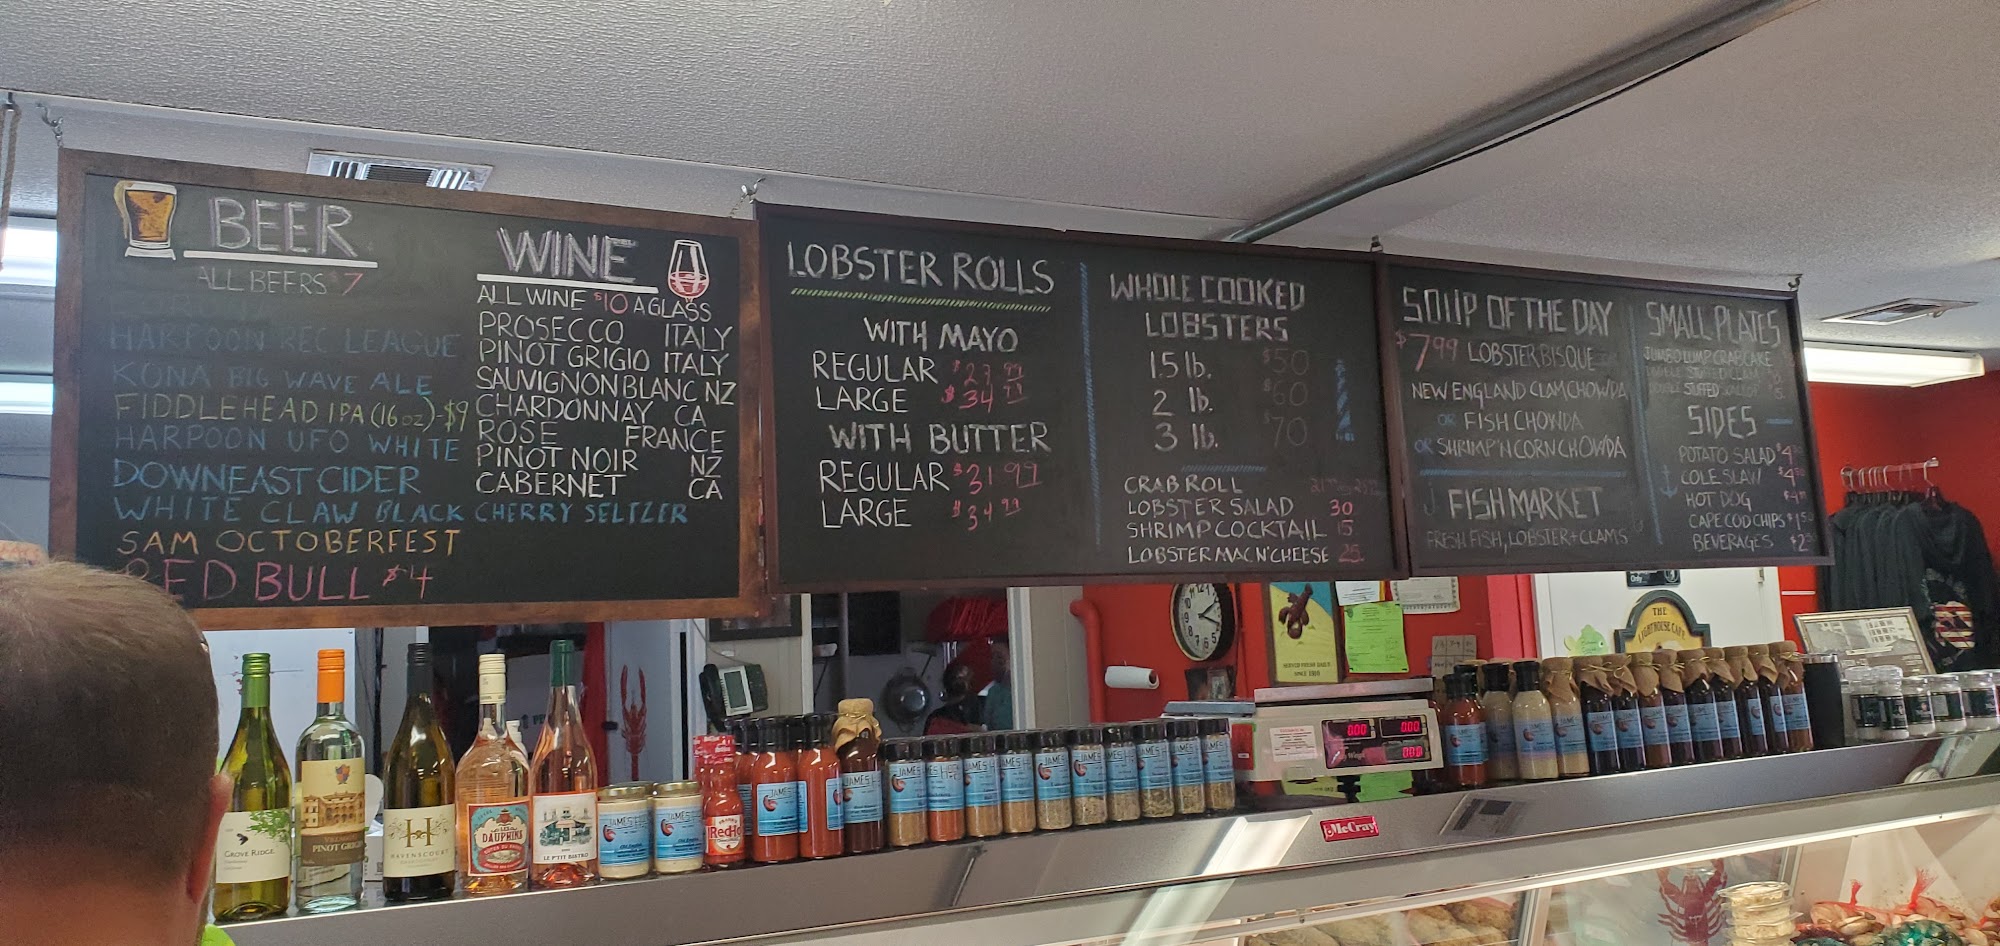 BEER
ALL BEERS $7
HARPOON REC LEAGUE
KONA BIG WAVE ALE
FIDDLEHEAD IPA (16oz)-$9
HARPOON UFO WHITE
DOWNEAST CIDER
WHITE CLAW BLACK CHERRY SELTZER
SAM OCTOBERFEST
RED BULL $4
WINE
ALL WINE $10 A GLASS
PROSECCO ITALY
PINOT GRIGIO ITALY
SAUVIGNON BLANC NZ
CHARDONNAY CA
ROSE FRANCE
PINOT NOIR NZ
CABERNET CA
LOBSTER ROLLS
WITH MAYO
REGULAR
LARGE $34
WITH BUTTER
REGULAR $31 99
LARGE $34 99
WHOLE COOKED
LOBSTERS
1.5 lb. $50
2 lb. $60
3 lb. $70
CRAB ROLL
LOBSTER SALAD 30
SHRIMP COCKTAIL 15
LOBSTER MAC N' CHEESE 25
SOUP OF THE DAY
$7.99 LOBSTER BISQUE
NEW ENGLAND CLAM CHOWDA
OR FISH CHOWDA
OR SHRIMP 'N CORN CHOWDA
FISH MARKET
FRESH FISH, LOBSTER + CLAMS
SMALL PLATES
JUMBO LUMP CRAB CAKE
STUFFED
SIDES
POTATO SALAD $4
COLE SLAW $4
HOT DOG $4
CAPE COD CHIPS $1
BEVERAGES $2
THE
LIGHTHOUSE CAFE
SERVED FRESH DAILY
GROVE RIDGE
PINOT GRIGIO
H
HAVENSCOURT
LES
DAUPHINS
LE P'TIT BISTRO
JAMES
JAMES
RedHot
JAMES
JAMES
JAMES
JAMES
JAMES
JAMES
0.00 0.00
0.00
McCray